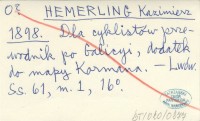 08 HEMERLING Kazimierz
1898. Dla cyklistów prze-
wodnik po Galicyi, dodatek
do mapy Kormana. – Lwów
Ss. 61, m. 1, 16°.